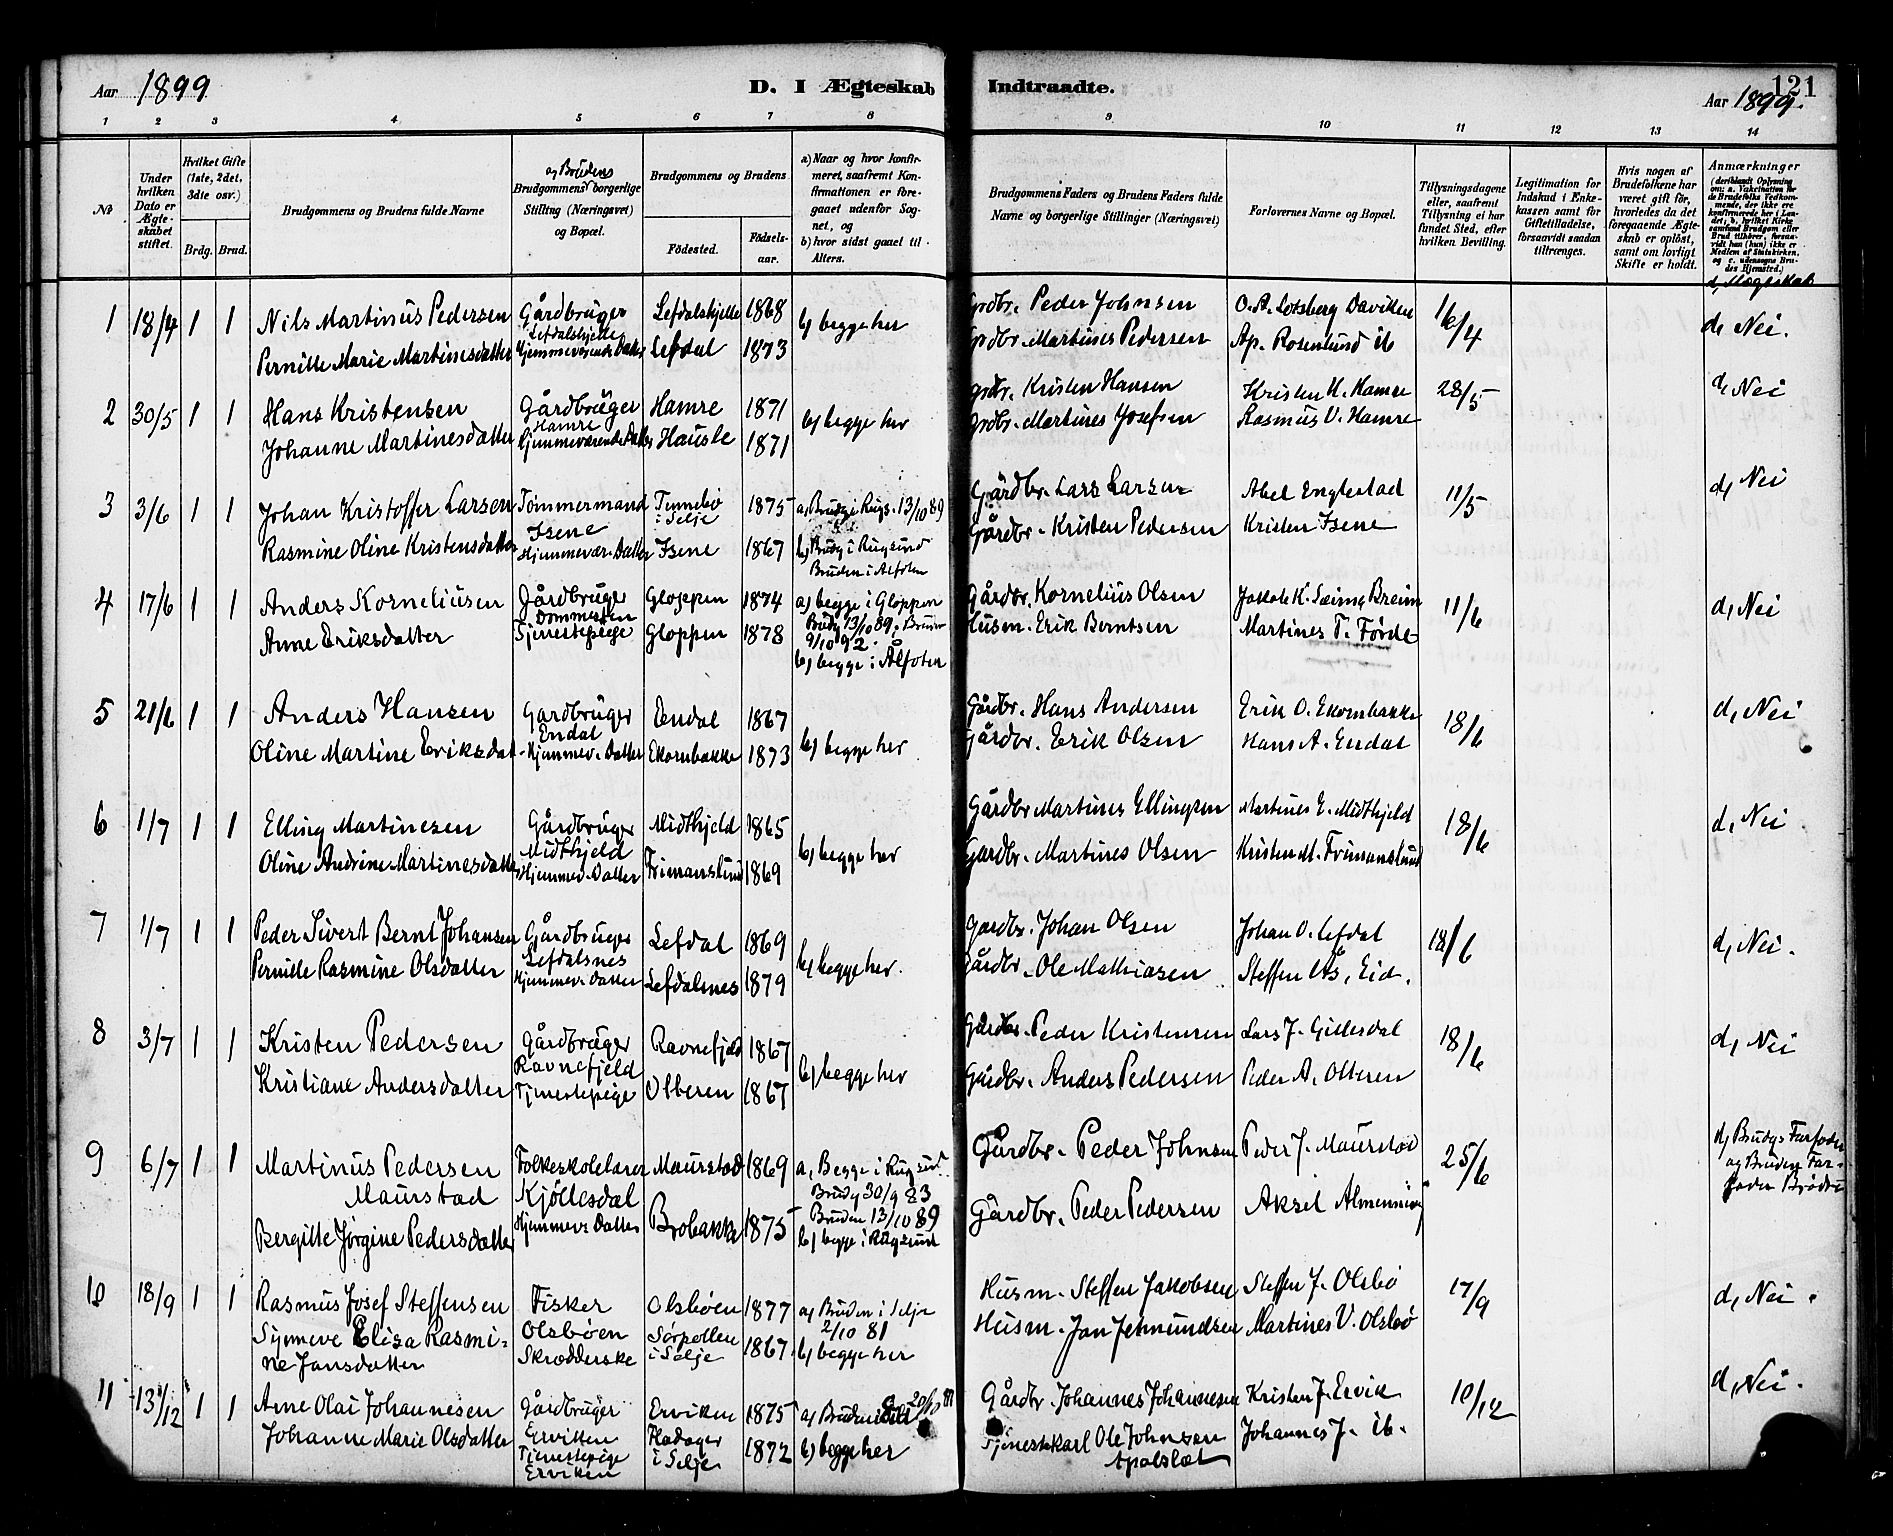 Aar 1899 D. I Ægteskab Indtraadte. 121
Aar 1899.
1 2 3 4 5 6 7 8 9 10 11 12 13 14
№
Under hvilken Dato er Ægteskabet stiftet.
Hvilket Gifte (1ste, 2det, 3die osv.)
Brdg. Brud.
Brudgommens og Brudens fulde Navne
og Brudens
Brudgommens borgerlige Stilling (Næringsvei) og Bopæl.
Brudgommens og Brudens
Fødested. Fødselsaar.
a) Naar og hvor konfirmeret, saafremt Konfirmationen er foregaaet udenfor Sognet, og
b) hvor sidst gaaet til Alters.
Brudgommens Faders og Brudens Faders fulde Navne og borgerlige Stillinger (Næringsvei)
Forlovernes Navne og Bopæl.
Tillysningsdagene eller, saafremt Tillysning ei har fundet Sted, efter hvilken Bevilling.
Legitimation for Indskud i Enkekassen samt for Giftetilladelse, forsaavidt saadan tiltrænges.
Hvis nogen af Brudefolkene har været gift før, hvorledes da det foregaaende Ægteskab er opløst, samt om lovligt Skifte er holdt.
Anmærkninger
1 18/4 1 1 Nils Martinus Pedersen Gårdbruger Lefdalshjelle 1868 b) begge her Grdbr. Peder Johnsen O. A. Lotsberg Daviken 16/4 d, Nei.
Lefdalshjelle
Pernille Marie Martinesdatter Hjemmeværende Datter Lefdal 1873 Grdbr. Martines Pedersen Ap. Rosenlund ib
2 30/5 1 1 Hans Kristensen Gårdbruger Hamre 1871 b) begge her Grdbr. Kristen Hansen Kristen H. Hamre 28/5 d, Nei
Hamre
Johanne Martinesdatter Hjemmeværende Datter Hausle 1871 Grdbr. Martines Josefsen Rasmus V. Hamre
3 3/6 1 1 Johan Kristoffer Larsen Tømmermand 1875 a, Brudg. i Rugs. 13/10 89 Gårdbr. Lars Larsen Abel Englestad 11/5 d, Nei
Isene i Selje
Rasmine Oline Kristensdatter Hjemmevær. Datter Isene 1867 b) Brudg i Rugsund Gårdbr. Kristen Pedersen Kristen Isene
Bruden i Alfoten
4 17/6 1 1 Anders Korneliusen Gårdbruger Gloppen 1874 a) begge i Gloppen Gårdbr. Kornelius Olsen Jakob K. Seime Breim 11/6 d, Nei
Dommesten Brudg 13/10 89, Bruden
Anne Eriksdatter Tjenestepige Gloppen 1878 9/10 92. Husm. Erik Berntsen Martines T. Førde
b) begge i Ålfoten
5 21/6 1 1 Anders Hansen Gardbruger Endal 1867 b) begge her Gårdbr. Hans Andersen Erik O. Ekornbakke 18/6 d, Nei
Endal
Oline Martine Eriksdat- Hjemmev. Datter Ekornbakke 1873 Gårdbr. Erik Olsen Hans A. Endal
6 1/7 1 1 Elling Martinesen Gårdbruger Midthjeld 1865 b) begge her Gårdbr Martines Ellingsen Martines E. Midthjeld 18/6 d, Nei
Midthjeld
Oline Andrine Martinesdatter Hjemmev. Datter Frimanslund 1869 Gardbr. Martines Olsen Kristen M. Frimanslund
7 1/7 1 1 Peder Sivert Bernt Johansen Gårdbruger Lefdal 1869 b) begge her. Gardbr. Johan Olsen Johan O. Lefdal 18/6 d, Nei.
Lefdalsnes
Pernille Rasmine Olsdatter Hjemmev. Datter Lefdalsnes 1879 Gårdbr. Ole Mathiasen Steffen Ås, Eid.
8 3/7 1 1 Kristen Pedersen Gårdbruger Ravnefjeld 1867 b) begge her Gårdbr. Peder Kristensen Lars J. Gillesdal 18/6 d, Nei
Ravnefjeld
Kristiane Andersdatter Tjenestepige Otteren 1867 Gårdbr. Anders Pedersen Peder A. Otteren
9 6/7 1 1 Martinus Pedersen Folkeskolelærer Maurstad 1869 a, Begge i Rugsund Gårdbr. Peder Johnsen Peder J. Maurstad 25/6 d, Brudgs Farfader
Maurstad Kjöllesdal Brudg 30/9 83 og Bruden Far-
Bruden 13/10 89 fader Brødre
Bergitte Jørgine Pedersdatter Hjemmev. Datter Brobakke 1875 b) begge i Rugsund Gårdbr. Peder Pedersen Aksel Almenning
10 18/9 1 1 Rasmus Josef Steffensen Fisker Olsbøen 1877 a) Bruden i Selje Husm. Steffen Jakobsen Steffen J. Olsbø 17/9 d, Nei.
2/10 81
Synneve Eliza Rasmi- Olsbøen Sørpollen Husm. Jan Jetmundsen Martines V. Olsbø
ne Jansdatter Skrædderske i Selje 1867 b) begge her
11 13/12 1 1 Arne Olai Johannesen Gårdbruger Erviken 1875 a) Bruden i Selje 20/10 Gårdbr Johannes Johannesen Kristen J. Ervik 10/12 d, Nei.
Johanne Marie Olsdatter Erviken i Selje 1872 b) begge her Tjenestekarl Ole Johnsen Johannes J. ib.
Tjenestepige Apalset
Erviken